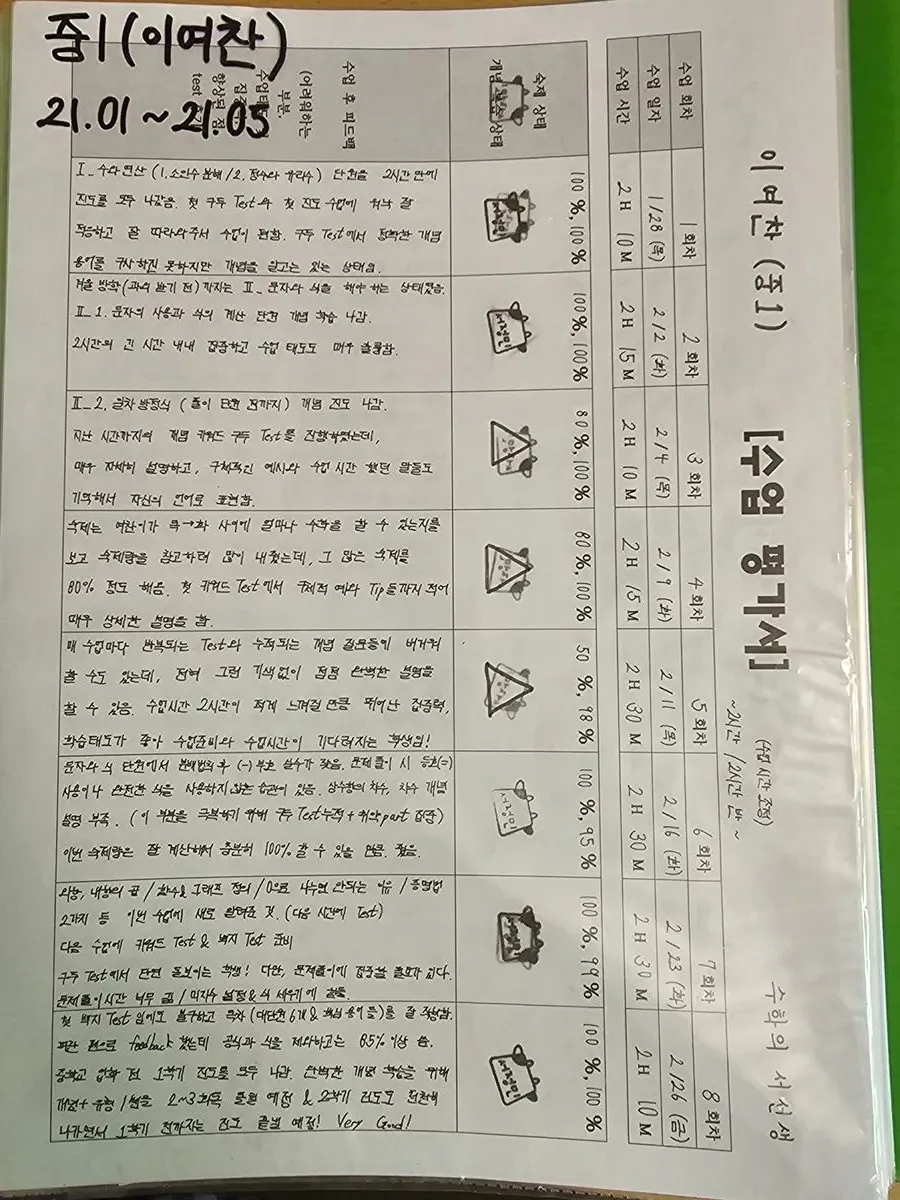 중1 (이여찬)
21.01 ~ 21.05
이 여 찬 (중1)
[수업 평가서]
(수업 시간 조정)
~2시간 / 2시간 반~
수학의 서선생
수업 회차
1 회차
2 회차
3 회차
4 회차
5 회차
6 회차
7 회차
8 회차
수업 일자
1/28 (목)
2/2 (화)
2/4 (목)
2/9 (화)
2/11 (목)
2/16 (화)
2/23 (화)
2/26 (금)
수업 시간
2H 10M
2H 15M
2H 10M
2H 15M
2H 30M
2H 30M
2H 30M
2H 10M
숙제 상태
개념 상태
100%, 100%
100%, 100%
80%, 100%
80%, 100%
50%, 98%
100%, 95%
100%, 99%
100%, 100%
수업 후 피드백
(어려워하는
부분,
향상된 점
test
I_ 수와 연산 (1. 소인수분해 / 2. 정수와 유리수) 단원을 2시간 만에
진도를 모두 나갔음. 첫 구두 Test와 첫 진도 수업에 잘
적응하고 잘 따라와주서 수업이 편함. 구두 Test에서 정확한 개념
용어를 구사하진 못하지만 개념을 알고는 있는 상태임.
겨울 방학 (과외 듣기 전) 까지는 II_ 문자와 식을 하는 상태였음.
II_1. 문자의 사용과 식의 계산 단원 개념 학습 나감.
2시간의 긴 시간 내내 집중하고 수업 태도도 매우 훌륭함.
II_2. 일차방정식 (풀이 단원 전까지) 개념 진도 나감.
지난 시간까지의 개념 키워드 구두 Test를 진행하였는데,
매우 자세히 설명하고, 구체적인 예시와 수업 시간 했던 말들도
기억해서 자신의 언어로 표현함.
숙제는 여찬이가 목→화 사이에 얼마나 수학을 할 수 있는지를
보고 숙제량을 참고하려 많이 내줬는데, 그 많은 숙제를
80% 정도 해옴. 첫 키워드 Test에서 구체적 예와 Tip들까지 적어
매우 상세한 설명을 함.
매 수업마다 반복되는 Test와 누적되는 개념 질문들에 버거워
할 수도 있는데, 전혀 그런 기색없이 점점 완벽한 설명을
할 수 있음. 수업시간 2시간이 적게 느껴질 만큼 뛰어난 집중력,
학습태도가 좋아 수업준비와 수업시간이 기다려지는 학생임!
문자와 식 단원에서 분배법칙 후 (-)부호 실수가 잦음. 문제 풀이 시 등호(=)
사용이나 완전한 식을 사용하지 않는 습관이 있음. 상수항의 차수, 차수 개념
설명 부족. (이 부분을 극복하기 위해 구두 Test누적 + 취약part 집중)
이번 숙제량은 잘 계산해서 충분히 100% 할 수 있을 만큼 줬음.
외항, 내항의 곱 / 함수& 그래프 정의 / 0으로 나누면 안되는 이유 / 증명법
2가지 등 이번 수업에 새로 알려준 것. (다음 시간에 Test)
다음 수업에 키워드 Test & 백지 Test 준비
구두 Test에서 단연 돋보이는 학생! 다만, 문제풀이에 집중할 필요가 있다.
문제풀이시간 너무 김 / 미지수 설정& 식 세우기에 힘듦.
첫 백지 Test 임에도 불구하고 목차 (대단원 6개 & 핵심 용어들)를 잘 작성함.
빨간 펜으로 feedback 줬는데 공식과 식을 제외하고는 85% 이상 씀.
중학교 입학 전 1학기 진도를 모두 나감. 완벽한 개념 학습을 위해
개념+유형 / 쎈을 2~3회독 돌릴 예정 & 2학기 진도도 천천히
나가면서 1학기 전까지는 진도 예정! Very Good!